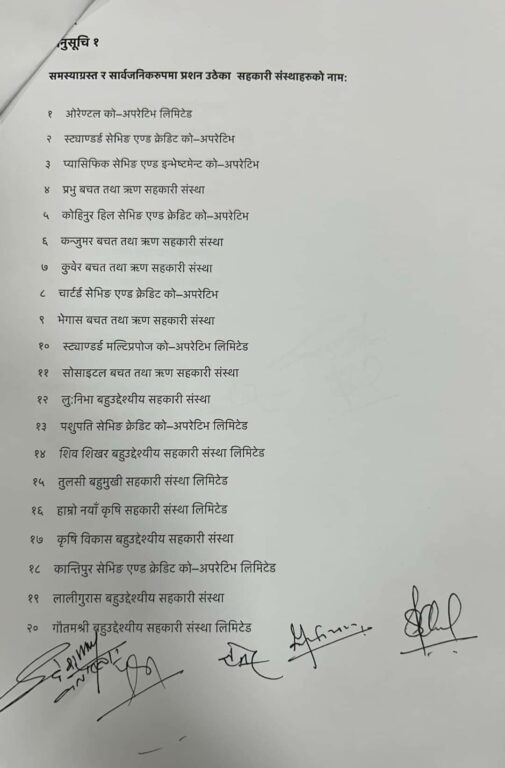 नुसूचि १
समस्याग्रस्त र सार्वजनिकरुपमा प्रशन उठेका सहकारी संस्थाहरुको नाम:
१ ओरेण्टल को–अपरेटिभ लिमिटेड
२ स्ट्याण्डर्ड सेभिङ एण्ड क्रेडिट को–अपरेटिभ
३ प्यासिफिक सेभिङ एण्ड इन्भेष्टमेन्ट को–अपरेटिभ
४ प्रभु बचत तथा ऋण सहकारी संस्था
५ कोहिनुर हिल सेभिङ एण्ड क्रेडिट को–अपरेटिभ
६ कन्जुमर बचत तथा ऋण सहकारी संस्था
७ कुवेर बचत तथा ऋण सहकारी संस्था
८ चार्टर्ड सेभिङ एण्ड क्रेडिट को–अपरेटिभ
९ भेगास बचत तथा ऋण सहकारी संस्था
१० स्ट्याण्डर्ड मल्टिप्रपोज को–अपरेटिभ लिमिटेड
११ सोसाइटल बचत तथा ऋण सहकारी संस्था
१२ लु:निभा बहुउद्देश्यीय सहकारी संस्था
१३ पशुपति सेभिङ क्रेडिट को–अपरेटिभ लिमिटेड
१४ शिव शिखर बहुउद्देश्यीय सहकारी संस्था लिमिटेड
१५ तुलसी बहुमुखी सहकारी संस्था लिमिटेड
१६ हाम्रो नयाँ कृषि सहकारी संस्था लिमिटेड
१७ कृषि विकास बहुउद्देश्यीय सहकारी संस्था
१८ कान्तिपुर सेभिङ एण्ड क्रेडिट को–अपरेटिभ लिमिटेड
१९ लालीगुरास बहुउद्देश्यीय सहकारी संस्था
२० गौतमश्री बहुउद्देश्यीय सहकारी संस्था लिमिटेड